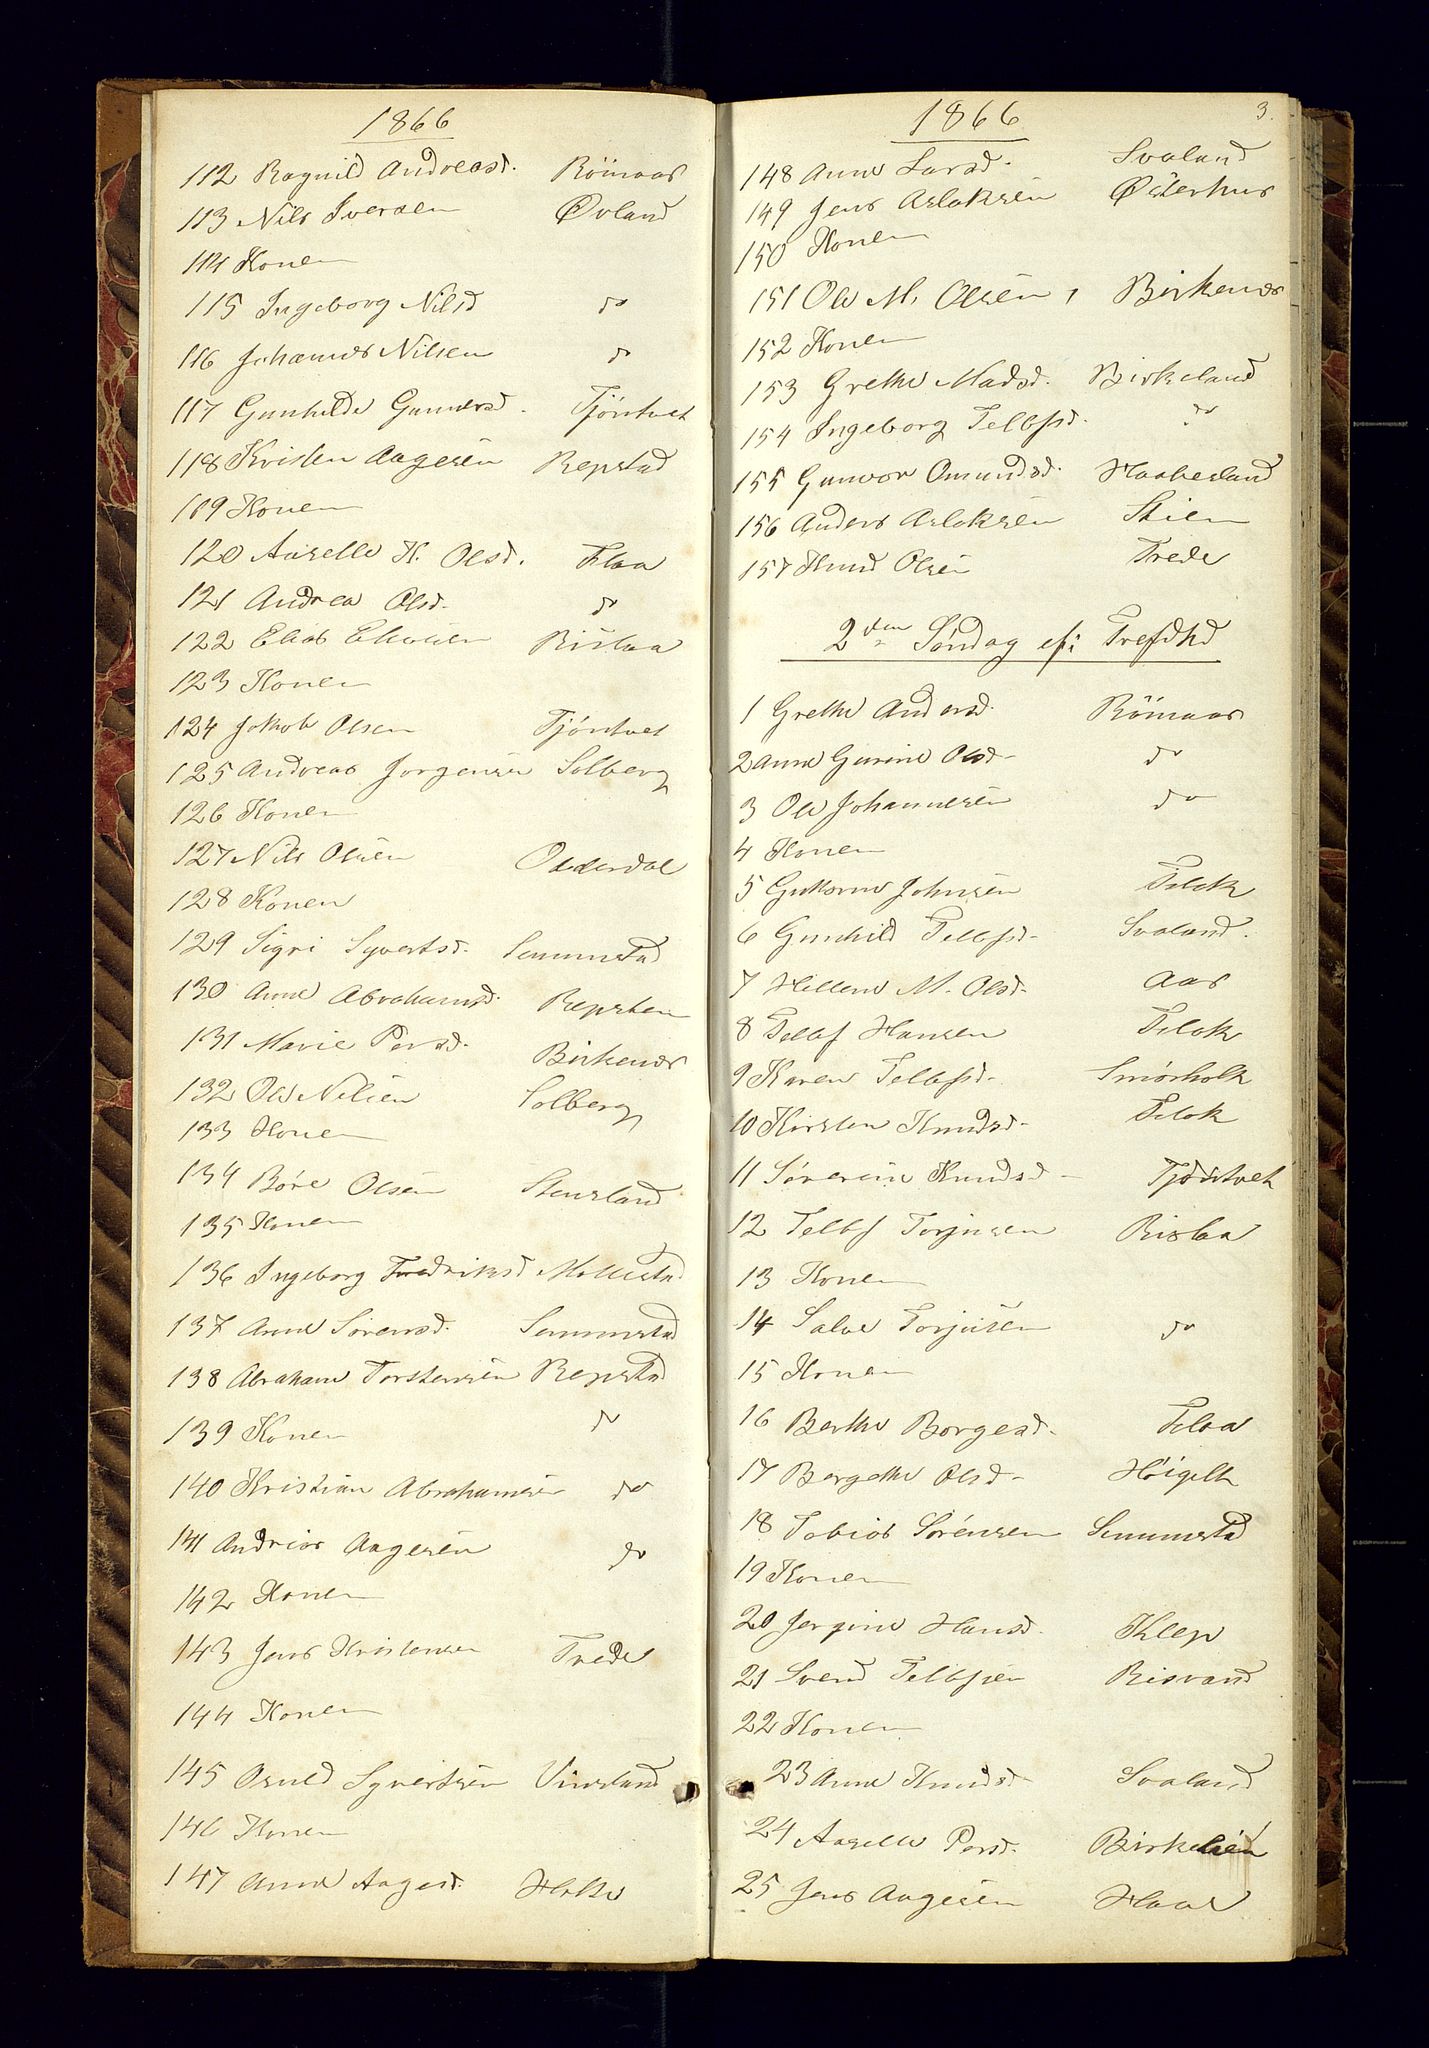 1866
112 Ragnild Andreasd. Römaas
113 Nils Iversen Øvland
114 Konen
115 Ingeborg Nilsd do
116 Johannes Nilsen do
117 Gunhilde Gunersd. Tjöntvet
118 Kristen Aagesen Repstad
119 Konen
120 Aaselle K. Olsd. Flaa
121 Andrea Olsd. do
122 Elias Eliasen Rislaa
123 Konen
124 Jakob Olsen Tjöntvet
125 Andreas Jorgensen Solberg
126 Konen
127 Nils Olsen Oddersdal
128 Konen
129 Sigri Syvertsd. Senumstad
130 Anne Abrahamsd. Repsten
131 Marie Persd. Birkenes
132 Ole Nilsen Solberg
133 Konen
134 Böre Olsen Stensland
135 Konen
136 Ingeborg Fredriksd Mollestad
137 Anne Sörensd. Senumstad
138 Abraham Torstensen Repstad
139 Konen do
140 Kristian Abrahamsen do
141 Andrias Aagesen do
142 Konen
143 Jens Kristensen Trede
144 Konen
145 Osuld Syvertsen Vinsland
146 Konen
147 Anne Aagesd. Holte
1866 3.
148 Anne Larsd. Svaland
149 Jens Aslaksen Østerhus
150 Konen
151 Ole M. Olsen, Birkenes
152 Konen
153 Grethe Madsd. Birkeland
154 Ingeborg Tellefsd. do
155 Gunvor Omundsd. Haabesland
156 Anders Aslaksen Stien
157 Knud Olsen Trede
2den Søndag ef: Trefdhd
1 Grethe Andersd. Römaas
2 Anne Gurine Olsd- do
3 Ole Johannesen do
4 Konen
5 Guttorm Johnsen Flak
6 Gunhild Tellefsd- Svaland.
7 Hellene M. Olsd- Aas
8 Tellef Hansen Flak
9 Karen Tellefsd- Smörholt
10 Kirsten Knudsd- Flak
11 Sörerine Knudsd- Tjöstvet
12 Tellef Torjusen Rislaa
13 Konen
14 Salve Torjusen do
15 Konen
16 Berthe Borgesd- Flaa
17 Bergethe Olsd- Höigilt
18 Tobias Sörensen Senumstad
19 Konen
20 Jorgine Hansd. Klep
21 Svend Tellefsen Risvand
22 Konen
23 Anne Knudsd- Svaland
24 Aaselle Persd. Birkelien
25 Jens Aagesen Haave